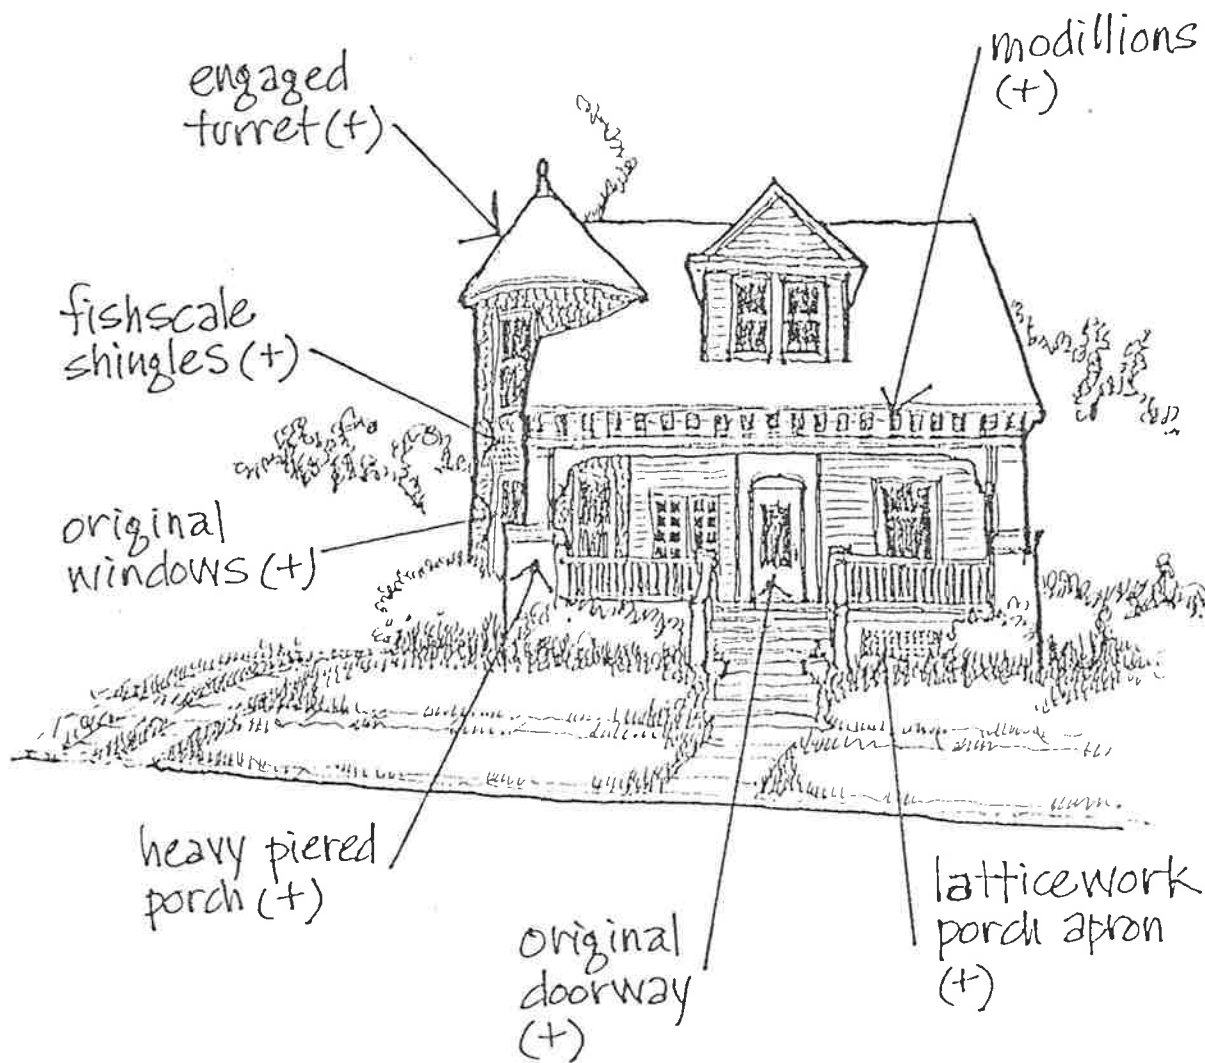 engaged
turret (+)
modillions
(+)
fishscale
shingles (+)
original
windows (+)
heavy piered
porch (+)
original
doorway
(+)
latticework
porch apron
(+)